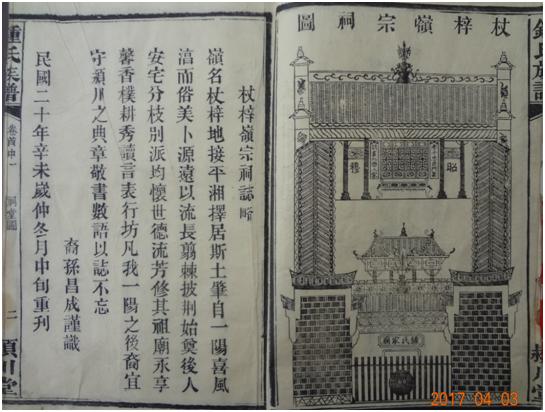 鍾氏族譜
潁川堂
杖梓嶺宗祠圖
昭
穆
鍾氏家廟
杖梓嶺宗祠誌略
嶺名杖梓地接平湘擇居斯土肇自一陽喜風
湻而俗美卜源遠以流長翦棘披荆始奠後人
安宅分枝別派均懷世德流芳修其祖廟永享
馨香樸耕秀讀言表行坊凡我一陽之後裔宜
守潁川之典章敬書數語以誌不忘
裔孫昌成謹識
民國二十年辛未歲仲冬月中旬重刊
鍾氏族譜
卷首中一
祠堂圖
二
潁川堂
2017 04 03